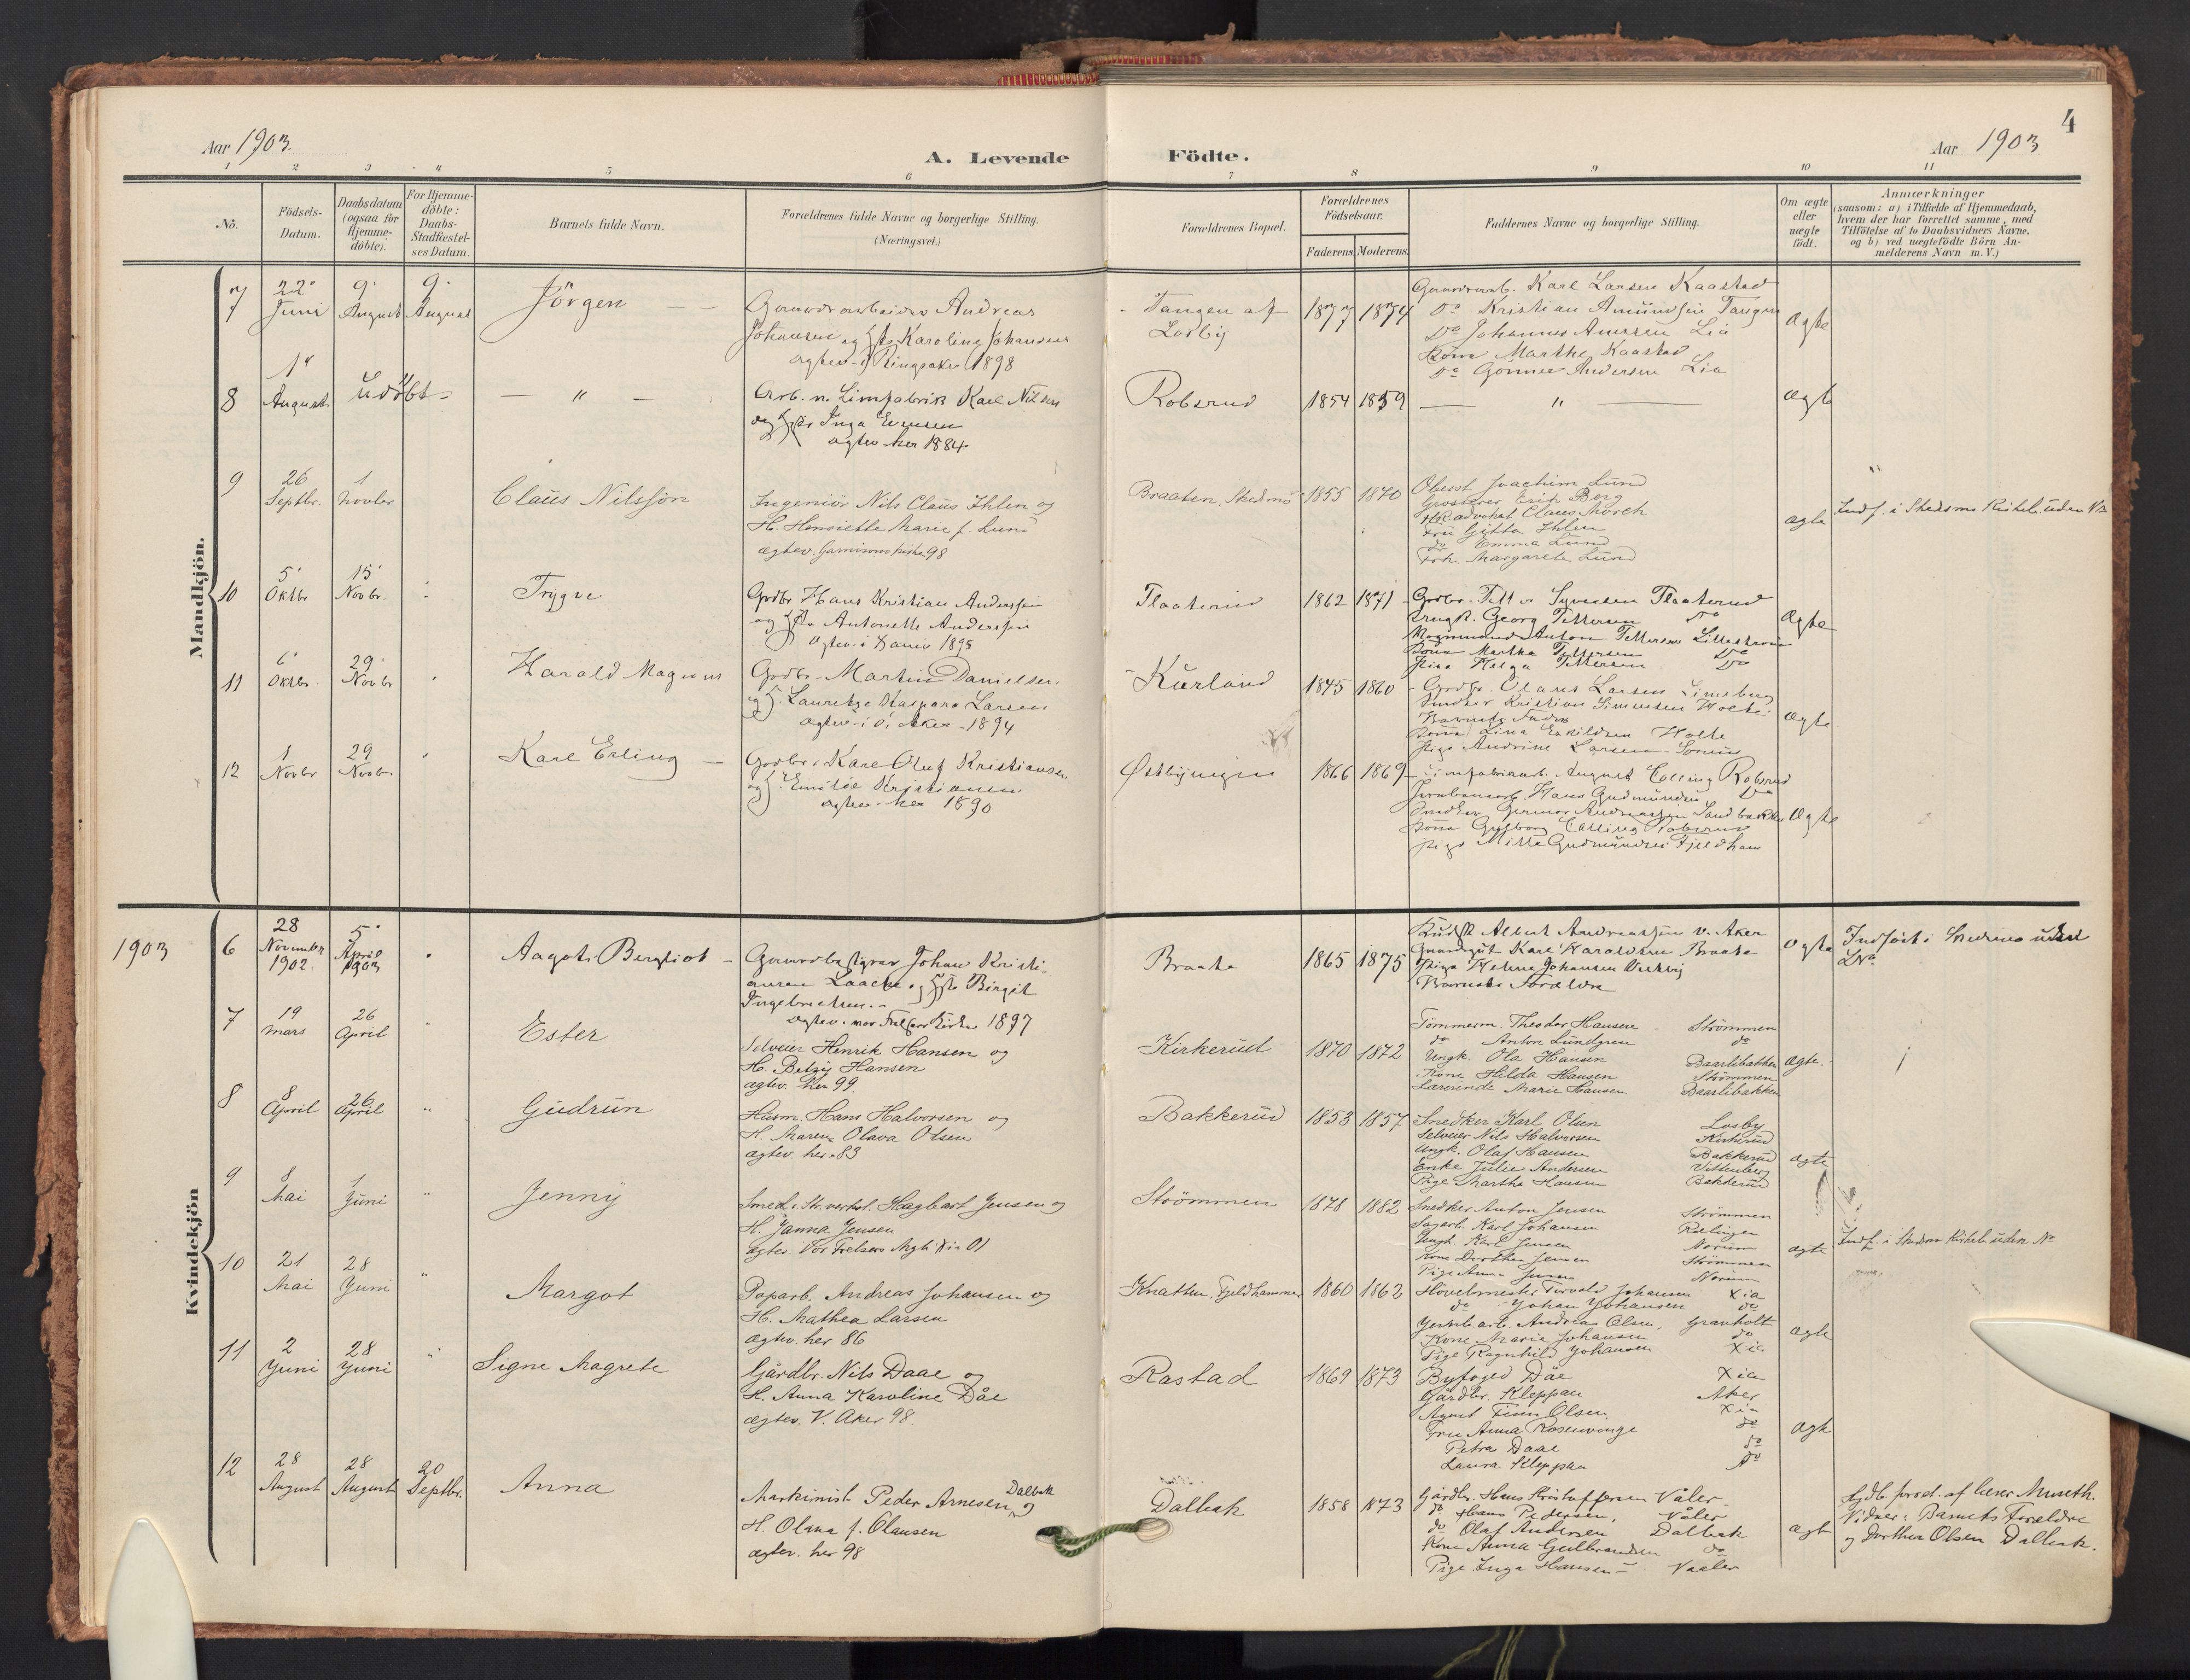 4
Aar 1903.
A. Levende Födte.
Aar 1903
1 2 3 4 5 6 7 8 9 10 11
No.
Födsels-Datum.
Daabsdatum (ogsaa for Hjemme-döbte).
For Hjemme-döbte: Daabs-Stadfæstel-ses Datum.
Barnets fulde Navn.
Forældrenes fulde Navne og borgerlige Stilling.
(Næringsvei.)
Forældrenes Bopæl.
Forældrenes Födselsaar.
Faderens Moderens
Faddernes Navne og borgerlige Stilling.
Om ægte eller uægte födt.
Anmærkninger
(saasom: a) i Tilfælde af Hjemmedaab,
hvem der har forrettet samme, med
Tilföielse af to Daabsvidners Navne.
og b) ved uægtefödte Börn An-
melderens Navn m. V.)
Mandkjön.
7
22 Juni
9 August
9 August
Jörgen
Gaardsarbeider Andreas
Johansen og Karoline Johansen
ægtev. i Ringsaker 1898
Tangen af
Losby
1877 1874
Gaardsarb. Karl Larsen Kaastad
Do Kristian Amundsen Tangen
Do Johannes Andersen Lia
Kona Marthe Kaastad
Do Andersen Lia
Ægte
8
1 August
Udöbt
"
Arb. v. Limfabrik Karl Nilsen
og Inga Evensen
ægtev her 1884
Robsrud
1854 1859
"
ægte
9
26 Septbr.
1 Novbr
Claus Nilssön
Ingeniör Nils Claus Ihlen og
H. Henriette Marie f. Lund
ægtev. Garnisons kirke 98
Braaten, Skedsmo
1855 1870
Oberst Joachim Lund
Grosserer Erik Berg
HR.advokat Claus Mörch
Fru Gitta Ihlen
do Emma Lund
Frk. Margarete Lund
ægte
Indf. i Skedsmo Kirkeb. uden No
10
5 Oktbr
15 Novbr.
Trygve
Grdbr Hans Kristian Anderssen
og Antonette Anderssen
Ægtev. i 1895
Flaaterud
1862 1871
Grdbr. Syversen Flaaterud
Georg Pettersen Do
Anton Pettersen Lilleström
Kona Martha Pettersen Do
Pige Helga Pettersen Do
Ægte
11
6 Oktbr.
29 Novbr
Harald Magnus
Grdbr. Martin Danielsen
og H. Lauritze Kaspara Larsen
Ægtev. i Ö. Aker 1894
Kurland
1845 1860
Grdbr. Olaus Larsen
Snedker Kristian Simensen Holte
Barnets Fader
Kona Lina Eskildsen Holte
Pige Andrine Larsen
Ægte
12
1 Novbr
29 Novbr
Karl Erling
Grdbr. Karl Oluf Kristiansen
og H. Emilie Kristiansen
ægtev. her 1890
Østbyengen
1866 1869
Limfabrikarb. August Colling Robsrud
Jernbanearb. Hans Gudmundsen Do
Snedker Andreassen Sandbakken
Kona Colling Robsrud
Pige Mitta Gudmundsen Fjeldham
Ægte
Kvindekjön
1903
6
28 November 1902
5 April 1903
Aagot Bergliot
Gaardbestyrer Johan Kristi-
ansen Laache og Birgit
Ingebretsen.
Ægtev. vor Frelsers Kirke 1897
Braate
1865 1875
Kudsk Albert Andreassen v. Aker
Karl Haraldsen Braate
Pige Helene Johansen
Barnets Forældre
Ægte
Indfört i Skedsmo uden
No.
7
19 Mars
26 April
Ester
Selveier Henrik Hansen og
H. Betzy Hansen
ægtev. her 99
Kirkerud
1870 1872
Tömmerm. Theodor Hansen Strömmen
do Anton Lundgren do
Ungk. Ola Hansen Baarlibakken
Kone Hilda Hansen Strömmen
Lærerinde Marie Hansen Baarlibakken
ægte.
8
8 April
26 April
Gudrun
Husm. Hans Halvorsen og
H. Maren Olava Olsen
ægtev her 83
Bakkerud
1853 1857
Snedker Karl Olsen Losby
Selveier Nils Halvorsen Kirkerud
Ungk. Olaf Hansen Bakkerud
Enke Julie Andersen Vittenberg
Pige Martha Hansen Bakkerud
ægte
9
8 Mai
1 Juni
Jenny
Smed v. Str. verkst. Hagbart Jensen og
H. Janna Jensen
ægtev. Vor Frelsers Kia 01
Strömmen
1878 1882
Snedker Anton Jensen Strömmen
Sagarb. Karl Johansen Rælingen
Ungk. Karl Jensen Norum
Kone Dorthea Jensen Strömmen
Pige Anna Jensen Norum
ægte
Indf. i Skedsmo Kirkeb. uden No
10
21 Mai
28 Juni
Margot
Paparb. Andreas Johansen og
H. Mathea Larsen
ægtev. her 86
Knatten, Fjeldhammer
1860 1862
Hövelmester Torvald Johansen Xia
do Johan Johansen do
Jernb. arb. Andreas Olsen, Granholt
Kone Marie Johansen do
Pige Ragnhild Johansen Xia
ægte
11
2 Juni
28 Juni
Signe Magrete
Gårdbr. Nils Daae og
H. Anna Karoline Dåe
ægtev. V. Aker 98.
Rastad
1869 1873
Byfoged Dåe Xia
Gårdbr. Kleppan Aker
Agent Finn Olsen Xia
Fru Anna Rosenvinge do
Petra Daae do
Laura Kleppan do
ægte
12
28 August
28 August
20 Septbr.
Anna
Maskinist Peder Arnesen Dalbak og
H. Olina f. Olausen
ægtev. her 98
Dalbak
1858 1873
Gårdbr. Hans Kristoffersen Våler
do Hans Pedersen, Våler
do Olaf Andersen Dalbak
Kone Anna Gulbrandsen do
Pige Inga Hansen Vaaler
ægte
Hjdb. forret. af lærer Museth.
Vidner: Barnets Forældre
og Dorthea Olsen Dalbak.